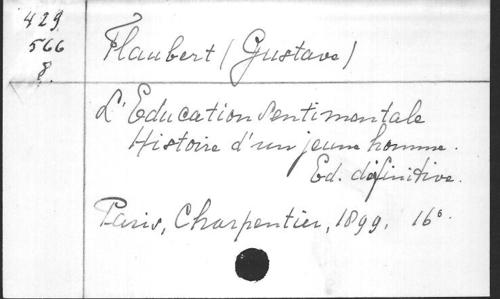 429
566
8.
Flaubert (Gustave)
L'Education Sentimentale
Histoire d'un jeune homme.
Ed. définitive.
Paris, Charpentier, 1899. 16°.